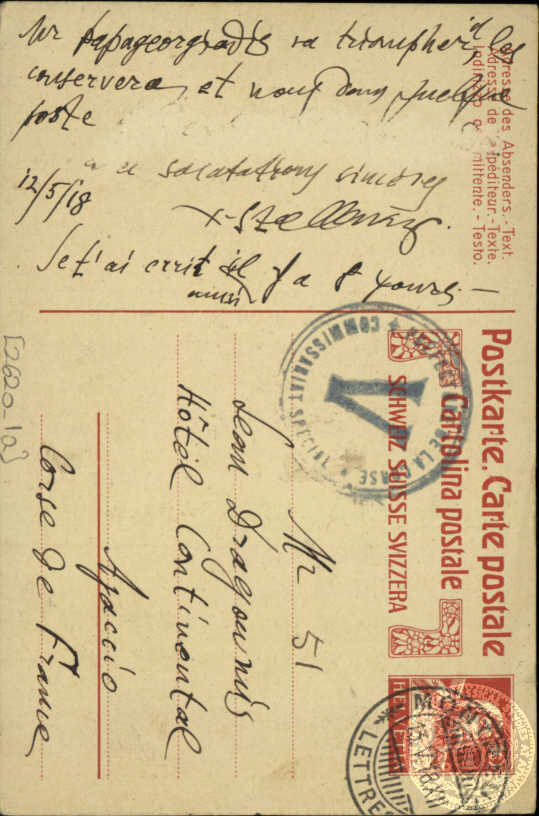 Mr papageorgiadis va triompher
conservera et nous dans quelque
poste
salutations sincères
12/5/18
Je t'ai écrit il y a 8 jours. —
aussi
Adresse des Absenders. - Text.
Adresse de l'expéditeur. - Texte.
Indirizzo del mittente. - Testo.
Postkarte. Carte postale
Cartolina postale
SCHWEIZ SUISSE SVIZZERA
PREFECTURE DE LA CORSE
COMMISSARIAT SPECIAL
V
Mr 51
Jean Dragoumis
Hôtel Continental
Ajaccio
Corse de France
[2620-1a]
LETTRES